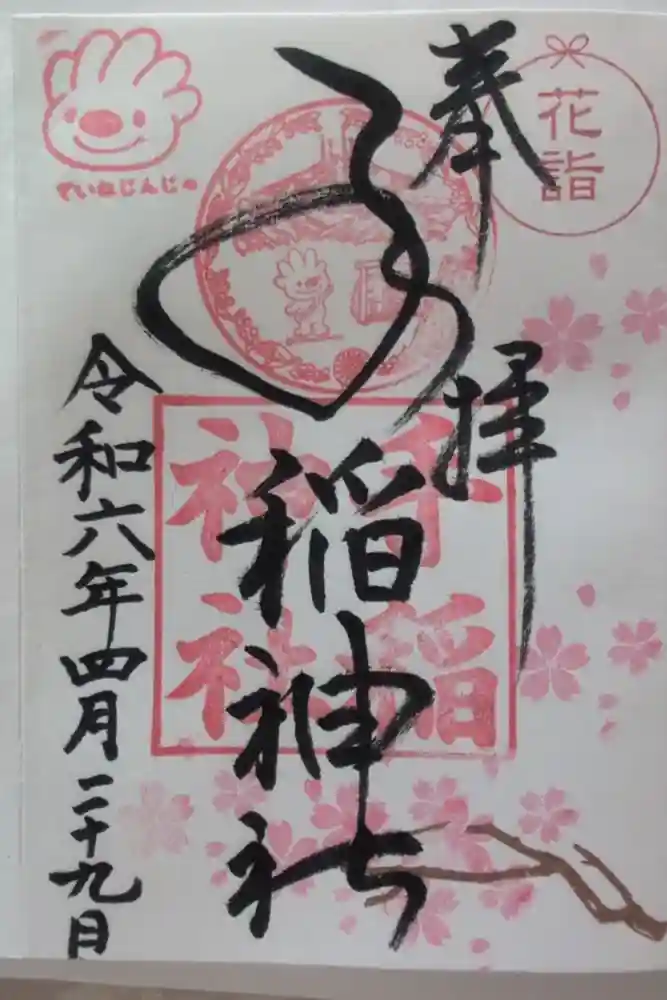 花詣
奉拝
手稲神社
手稲
神社
令和六年四月二十九日
ていねじんじゃ